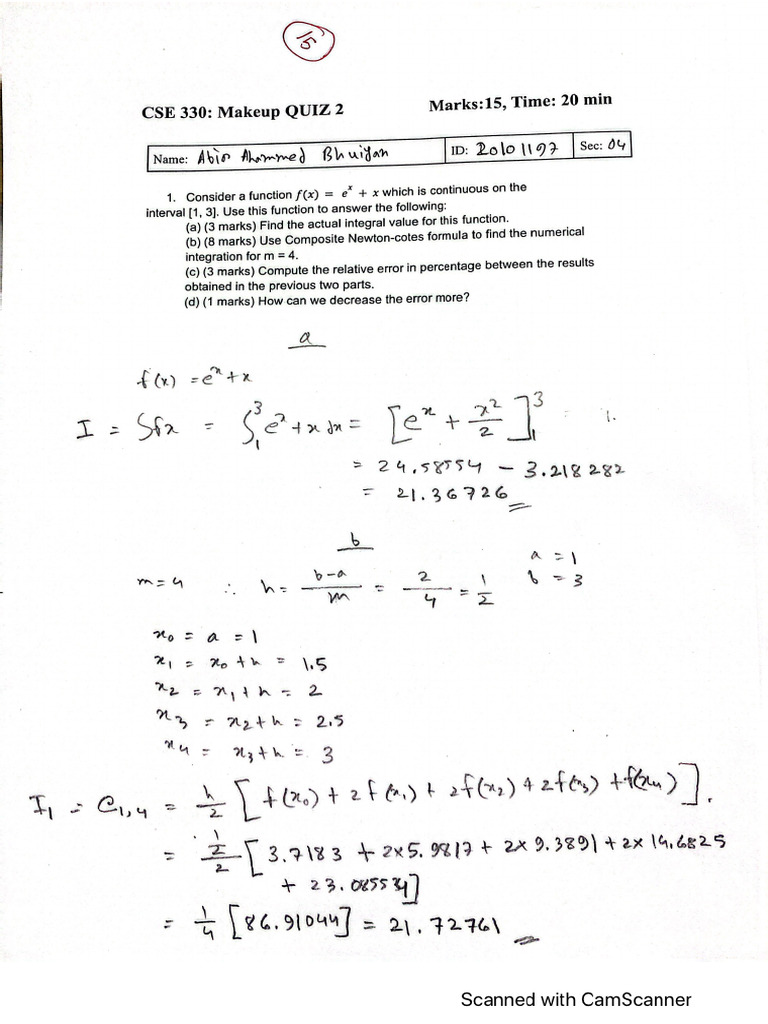 15
CSE 330: Makeup QUIZ 2 Marks:15, Time: 20 min
Name: Abir Ahammed Bhuiyan ID: 20101197 Sec: 04
1. Consider a function f(x) = e^x + x which is continuous on the
interval [1, 3]. Use this function to answer the following:
(a) (3 marks) Find the actual integral value for this function.
(b) (8 marks) Use Composite Newton-cotes formula to find the numerical
integration for m = 4.
(c) (3 marks) Compute the relative error in percentage between the results
obtained in the previous two parts.
(d) (1 marks) How can we decrease the error more?
a
f(x) = e^x + x
I = ∫fx = ∫₁³ e^x + x dx = [e^x + x²/2]₁³
= 24.58554 - 3.218282
= 21.36726
b
m=4 ∴ h = b-a/m = 2/4 = 1/2 a = 1
b = 3
x₀ = a = 1
x₁ = x₀ + h = 1.5
x₂ = x₁ + h = 2
x₃ = x₂ + h = 2.5
x₄ = x₃ + h = 3
I₁ = C₁,₄ = h/2 [f(x₀) + 2f(x₁) + 2f(x₂) + 2f(x₃) + f(x₄)].
= 1/2/2 [3.7183 + 2×5.9817 + 2×9.3891 + 2×14.6825
+ 23.085534]
= 1/4 [86.91044] = 21.72761
Scanned with CamScanner